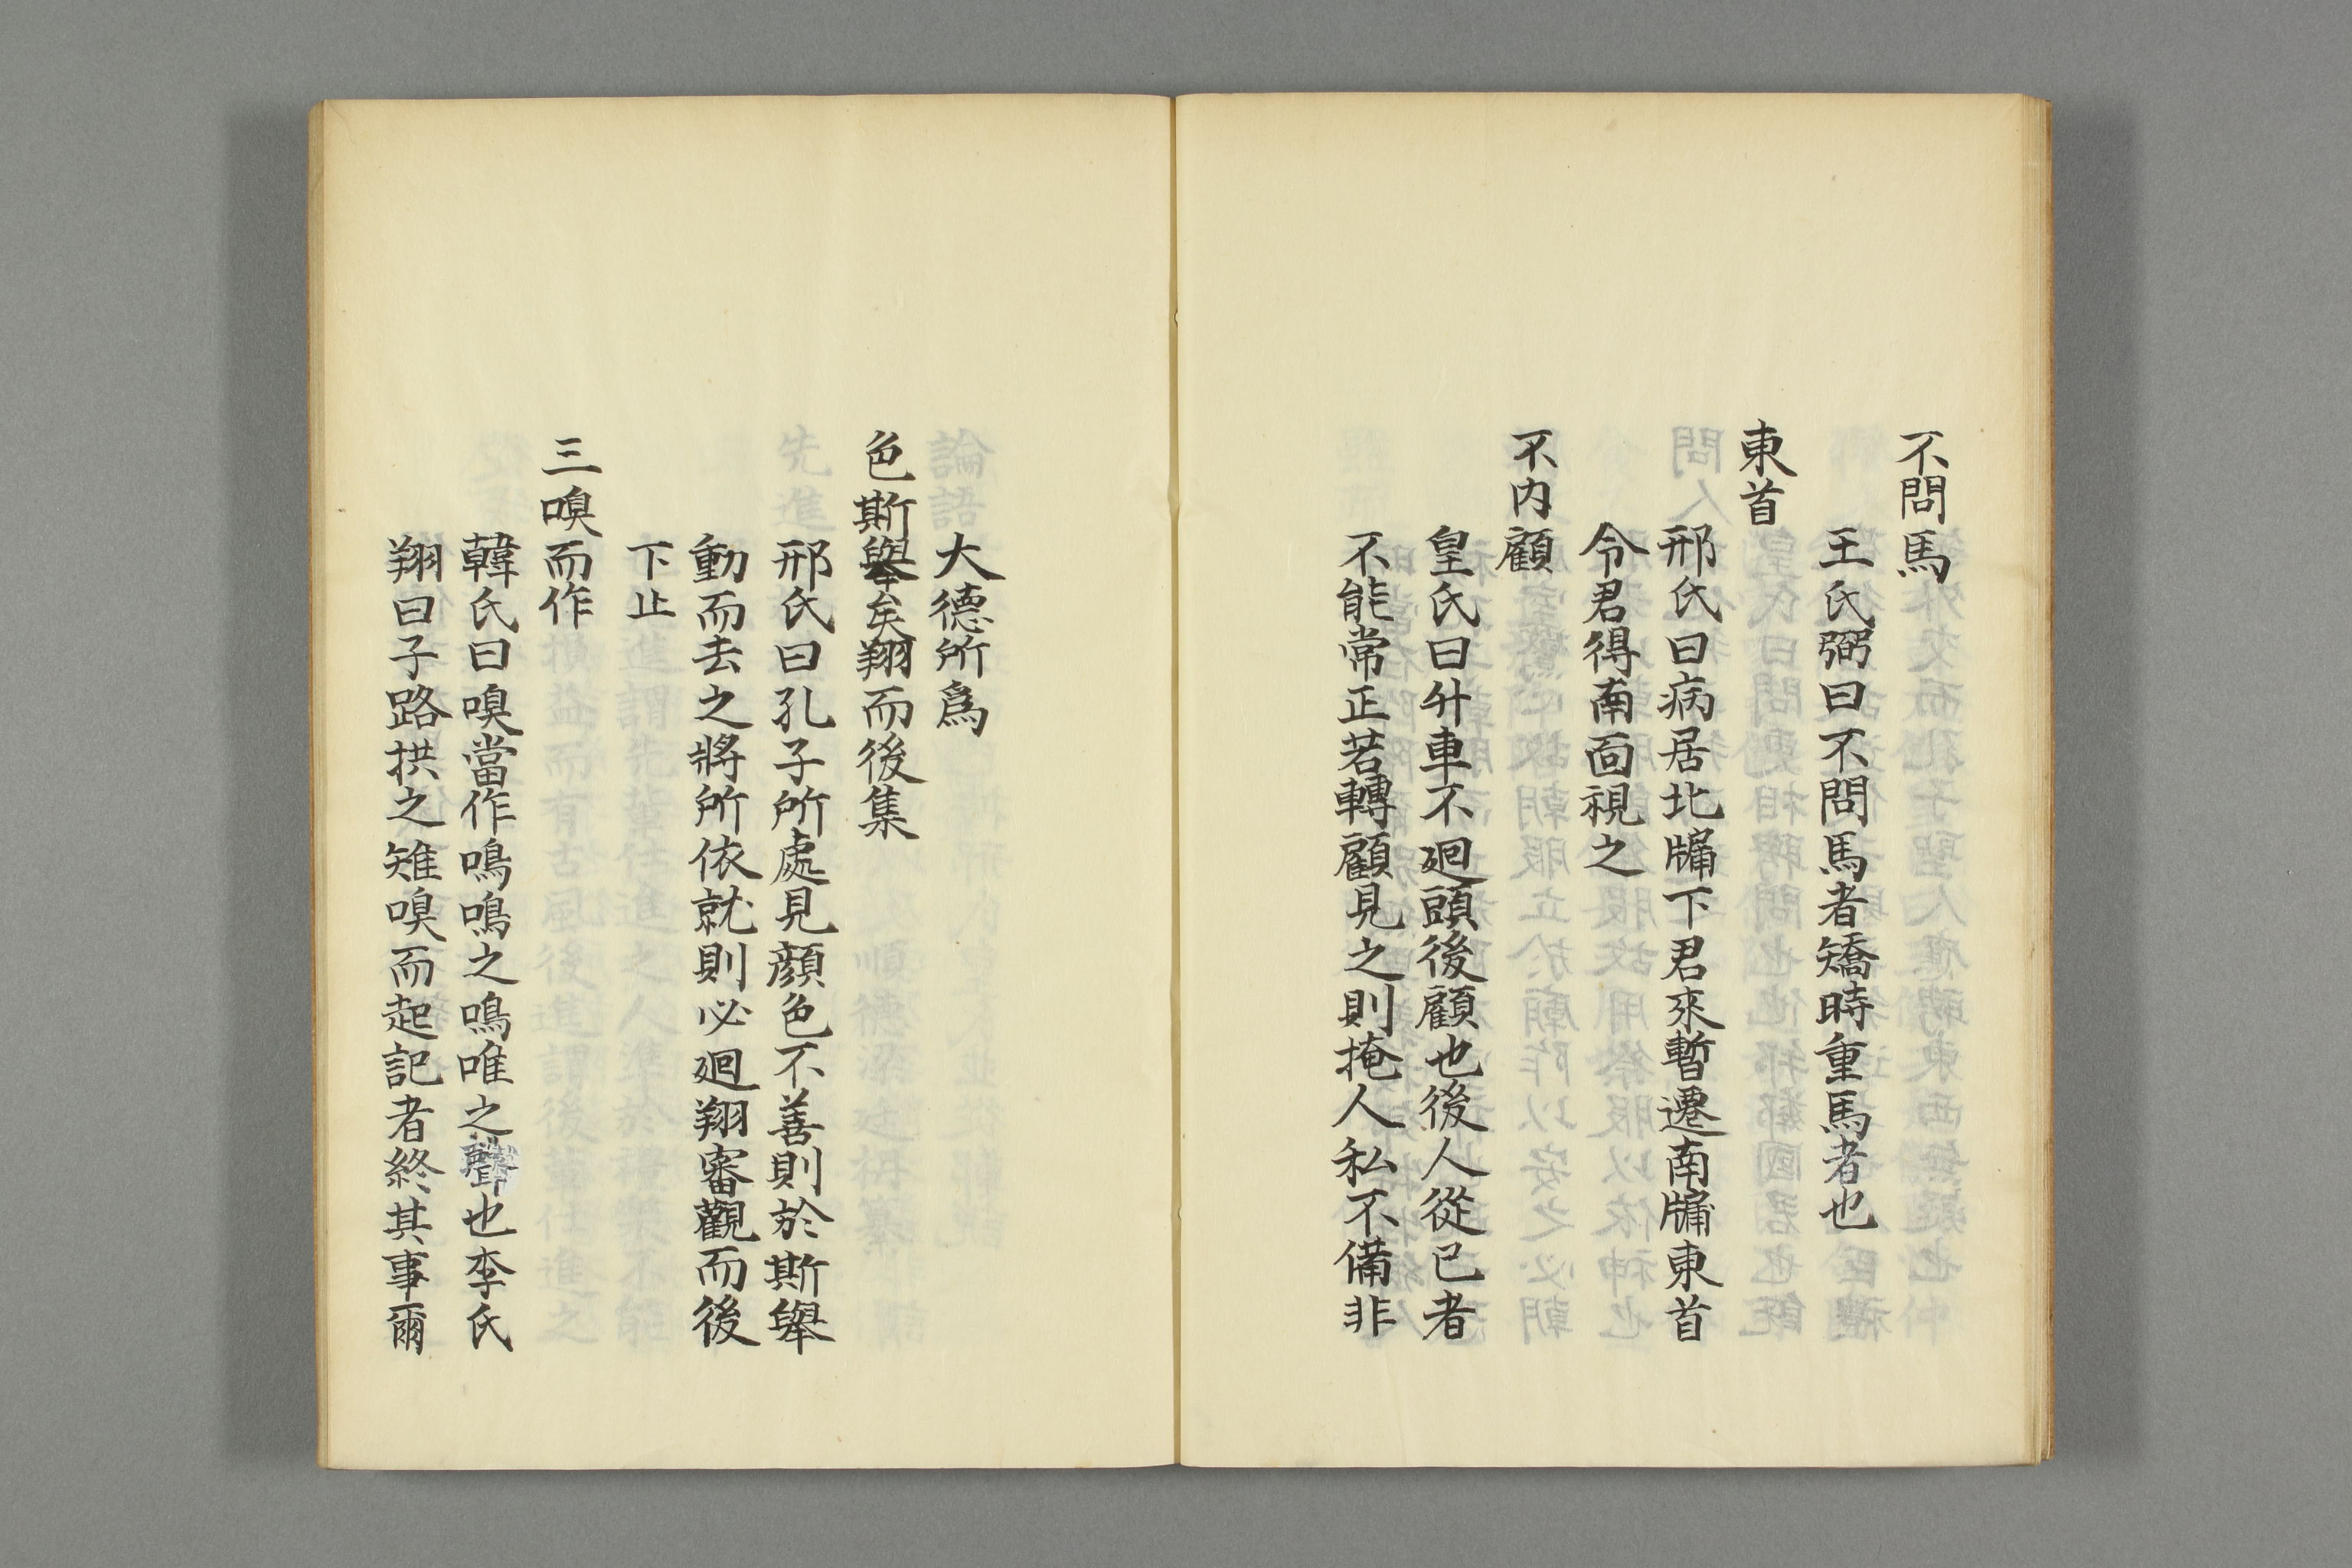 不問馬
王氏弼曰不問馬者矯時重馬者也
東首
邢氏曰病居北牗下君來暫遷南牗東首
令君得南面視之
不内顧
皇氏曰升車不廻頭後顧也後人從已者
不能常正若轉顧見之則掩人私不備非
大德所爲
色斯舉矣翔而後集
邢氏曰孔子所處見顔色不善則於斯舉
動而去之將所依就則必廻翔審觀而後
下止
三嗅而作
韓氏曰嗅當作鳴鳴之鳴唯之聲也李氏
翔曰子路拱之雉嗅而起記者終其事爾